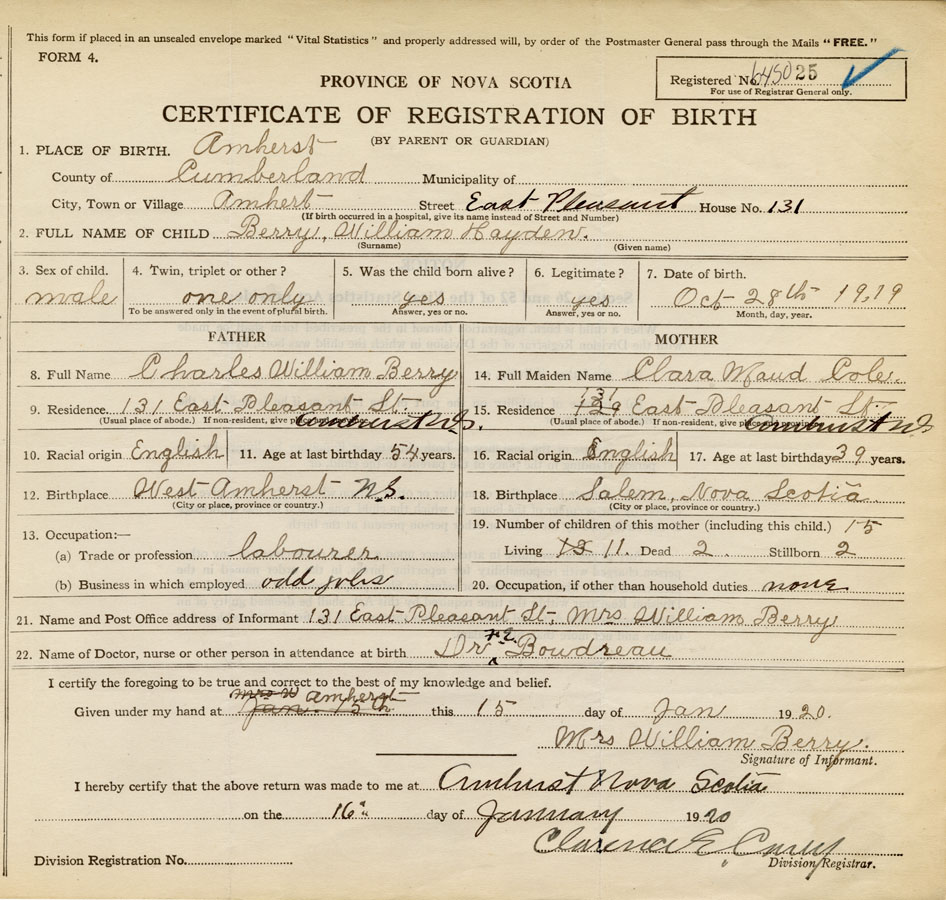 This form if placed in an unsealed envelope marked "Vital Statistics" and properly addressed will, by order of the Postmaster General pass through the Mails "FREE."
FORM 4.
Registered No. 645025
For use of Registrar General only.
PROVINCE OF NOVA SCOTIA
CERTIFICATE OF REGISTRATION OF BIRTH
(BY PARENT OR GUARDIAN)
1. PLACE OF BIRTH. Amherst
County of Cumberland Municipality of
City, Town or Village Amhert Street East Pleasant House No. 131
(If birth occurred in a hospital, give its name instead of Street and Number)
2. FULL NAME OF CHILD Berry, William Hayden.
(Surname) (Given name)
3. Sex of child. 4. Twin, triplet or other? 5. Was the child born alive? 6. Legitimate? 7. Date of birth.
male one only yes yes Oct 28th 1919
To be answered only in the event of plural birth. Answer, yes or no. Answer, yes or no. Month, day, year.
FATHER MOTHER
8. Full Name Charles William Berry 14. Full Maiden Name Clara Maud Cole.
9. Residence 131 East Pleasant St. 15. Residence 129 131 East Pleasant St.
(Usual place of abode.) If non-resident, give Amherst N.S. (Usual place of abode.) If non-resident, give Amherst NS
10. Racial origin English 11. Age at last birthday 54 years. 16. Racial origin English 17. Age at last birthday 39 years.
12. Birthplace West Amherst N.S. 18. Birthplace Salem, Nova Scotia
(City or place, province or country.) (City or place, province or country.)
13. Occupation:— 19. Number of children of this mother (including this child.) 15
(a) Trade or profession labourer Living 13 11. Dead 2. Stillborn 2
(b) Business in which employed odd jobs 20. Occupation, if other than household duties none
21. Name and Post Office address of Informant 131 East Pleasant St, Mrs William Berry
22. Name of Doctor, nurse or other person in attendance at birth Dr Boudreau
I certify the foregoing to be true and correct to the best of my knowledge and belief.
Mrs W Amherst
Given under my hand at Jan. 15th this 15 day of Jan 1920.
Mrs William Berry.
Signature of Informant.
I hereby certify that the above return was made to me at Amherst Nova Scotia
on the 16th day of January 1920
Clarence E.
Division Registrar.
Division Registration No.